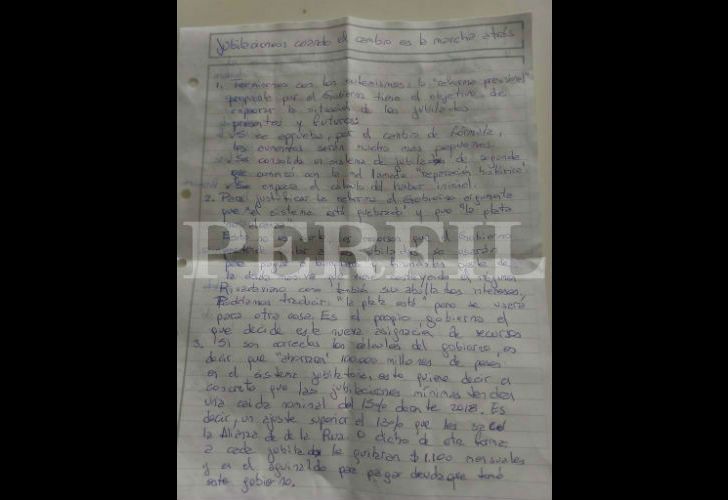 Jubilaciones cuando el cambio es la marcha atrás
1. Terminemos con los eufemismos: la "reforma previsional"
propuesta por el Gobierno tiene el objetivo de
empeorar la situación de los jubilados
presentes y futuros
Si se aprueba, por el cambio de fórmula,
los aumentos serán mucho más pequeños.
Se consolida un sistema de jubilados de segunda
que comenzó con la mal llamada "reparación histórica"
Se empeora el cálculo del haber inicial.
2. Para justificar la reforma el Gobierno argumenta
que "el sistema está quebrado" y que "la plata
PERFIL
Podríamos traducir: "la plata está" pero se usará
para otra cosa. Es el propio gobierno el
que decide esta nueva asignación de recursos
3. Si son correctos los cálculos del gobierno, es
decir que "ahorran" 100.000 millones de pesos
en el sistema jubilatorio, esto quiere decir en
concreto que las jubilaciones mínimas tendrán
una caída nominal del 15% durante 2018. Es
decir, un ajuste superior al 13% que les sacó
la Alianza de de la Rua. O dicho de otra forma
a cada jubilado le quitarán $1.100 mensuales
y en el aguinaldo para pagar deuda que tomó
este gobierno.